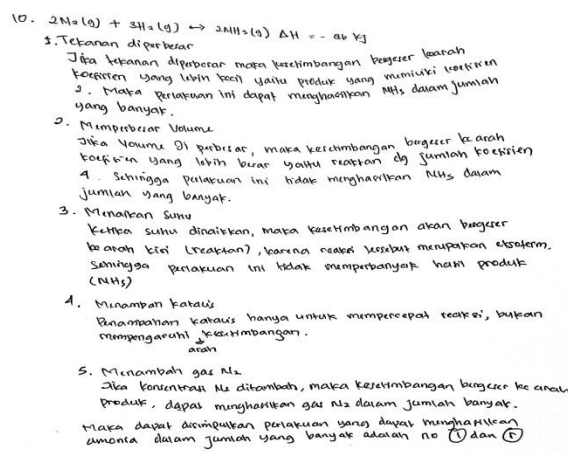 10. 2N2(g) + 3H2(g) ↔ 2NH3(g) ΔH = - 96 KJ
1. Tekanan diperbesar
Jika tekanan diperbesar maka kesetimbangan bergeser kearah
koefisien yang lebih kecil yaitu produk yang memiliki koefisien
2. Maka perlakuan ini dapat menghasilkan NH3 dalam jumlah
yang banyak.
2. Memperbesar Volume
Jika Volume Di perbesar, maka kesetimbangan bergeser ke arah
koefisien yang lebih besar yaitu reaktan dg jumlah koefisien
4. Sehingga perlakuan ini tidak menghasilkan NH3 dalam
jumlah yang banyak.
3. Menaikan Suhu
Ketika suhu dinaikkan, maka kesetimbangan akan bergeser
ke arah kiri (reaktan), karena reaksi tersebut merupakan eksoterm.
Sehingga perlakuan ini tidak memperbanyak hasil produk
(NH3)
4. Menambah katalis
Penambahan katalis hanya untuk mempercepat reaksi, bukan
mempengaruhi kesetimbangan.
arah
5. Menambah gas N2
Jika konsentrasi N2 ditambah, maka kesetimbangan bergeser ke arah
produk, dapat menghasilkan gas N2 dalam jumlah banyak.
Maka dapat disimpulkan perlakuan yang dapat menghasilkan
amonia dalam jumlah yang banyak adalah no 1 dan 5